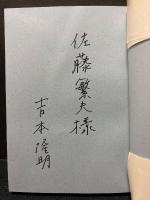 佐藤繁夫様
吉本隆明